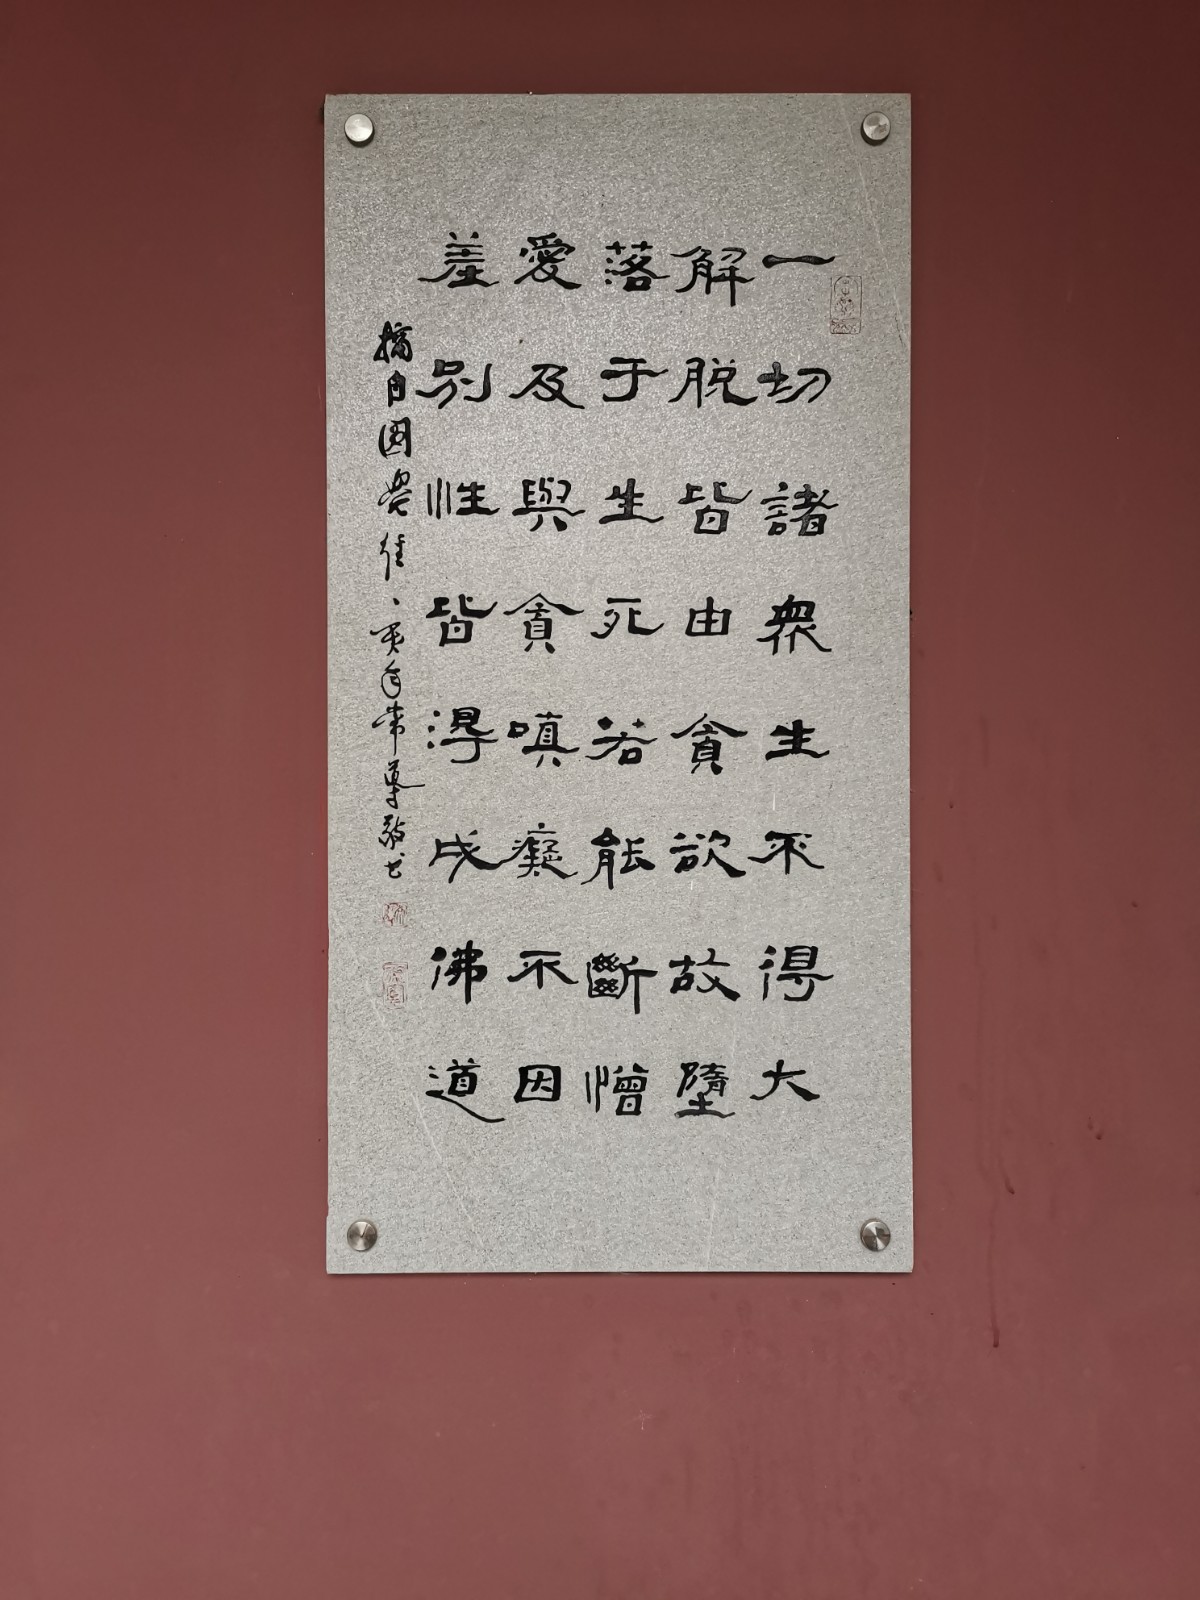 一切諸眾生不得大
解脱皆由貪欲故墮
落于生死若能斷憎
愛及與貪嗔癡不因
差别性皆得成佛道
摘自圆覺经